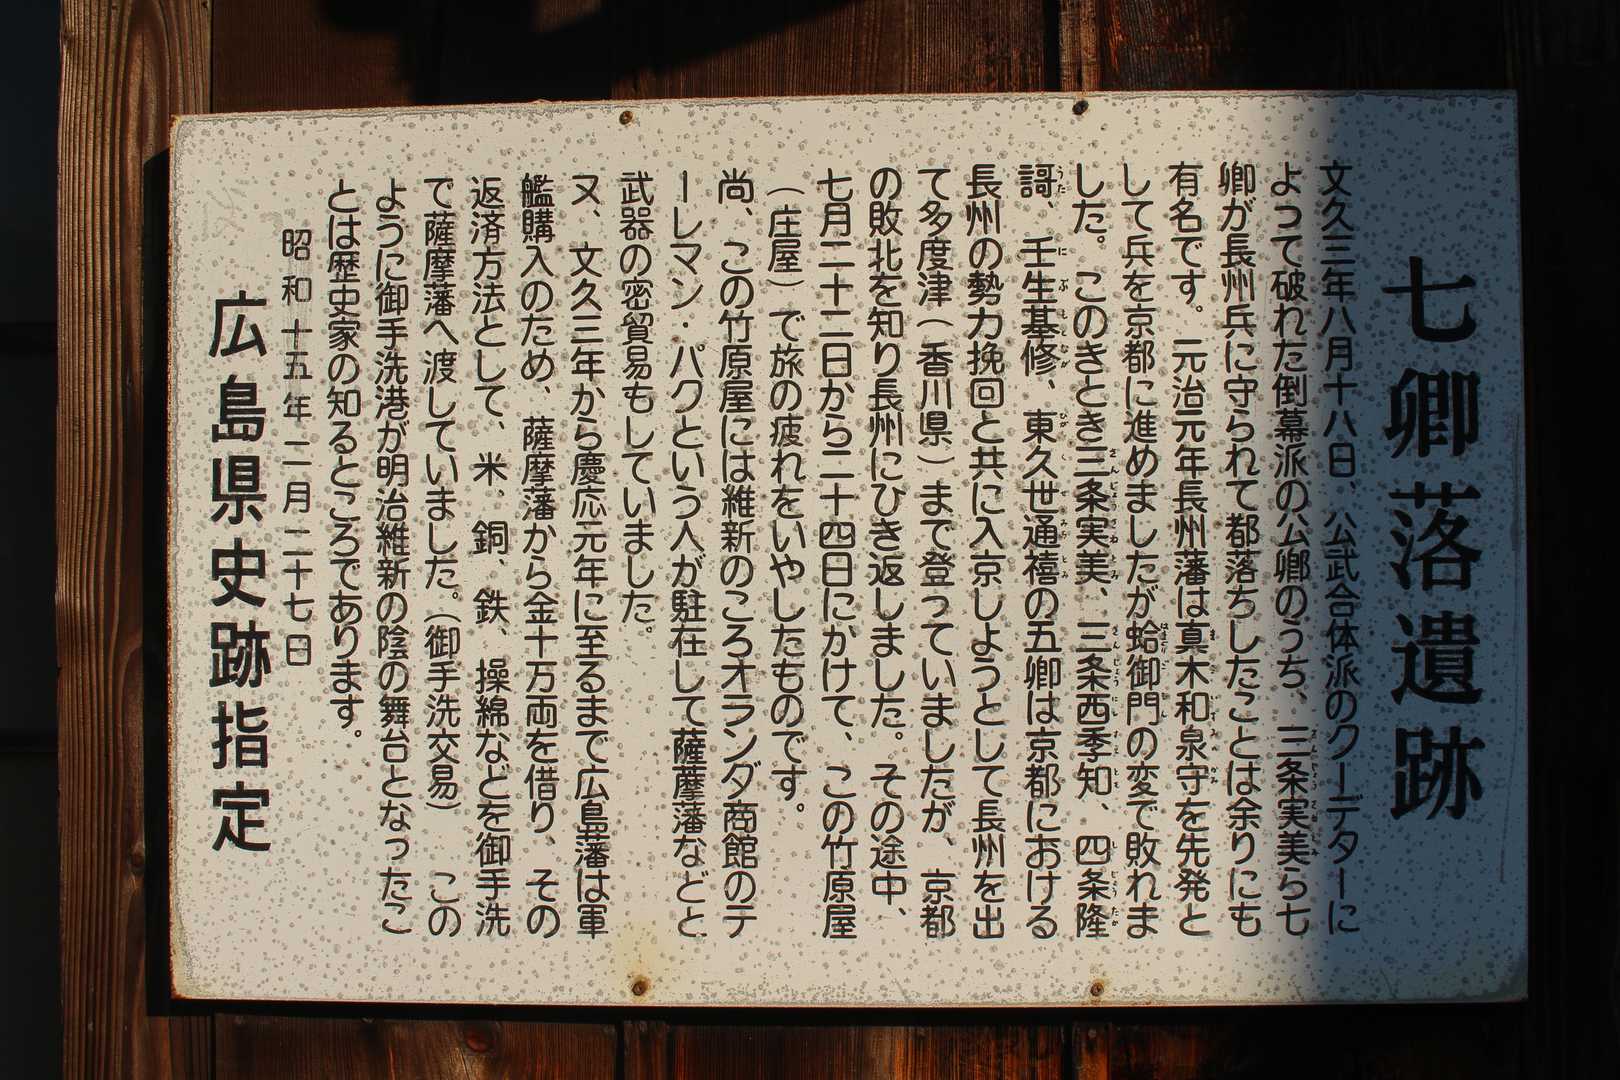 七卿落遺跡
文久三年八月十八日、公武合体派のクーデターに
よって破れた倒幕派の公卿のうち、三条実美ら七
卿が長州兵に守られて都落ちしたことは余りにも
有名です。元治元年長州藩は真木和泉守を先発と
して兵を京都に進めましたが蛤御門の変で敗れま
した。このきとき三条実美、三条西季知、四条隆
謌、壬生基修、東久世通禧の五卿は京都における
長州の勢力挽回と共に入京しようとして長州を出
て多度津（香川県）まで登っていましたが、京都
の敗北を知り長州にひき返しました。その途中、
七月二十二日から二十四日にかけて、この竹原屋
（庄屋）で旅の疲れをいやしたものです。
尚、この竹原屋には維新のころオランダ商館のテ
ーレマン・パクという人が駐在して薩摩藩などと
武器の密貿易もしていました。
ヌ、文久三年から慶応元年に至るまで広島藩は軍
艦購入のため、薩摩藩から金十万両を借り、その
返済方法として、米、銅、鉄、操綿などを御手洗
で薩摩藩へ渡していました。（御手洗交易）　この
ように御手洗港が明治維新の陰の舞台となったこ
とは歴史家の知るところであります。
昭和十五年二月二十七日
広島県史跡指定